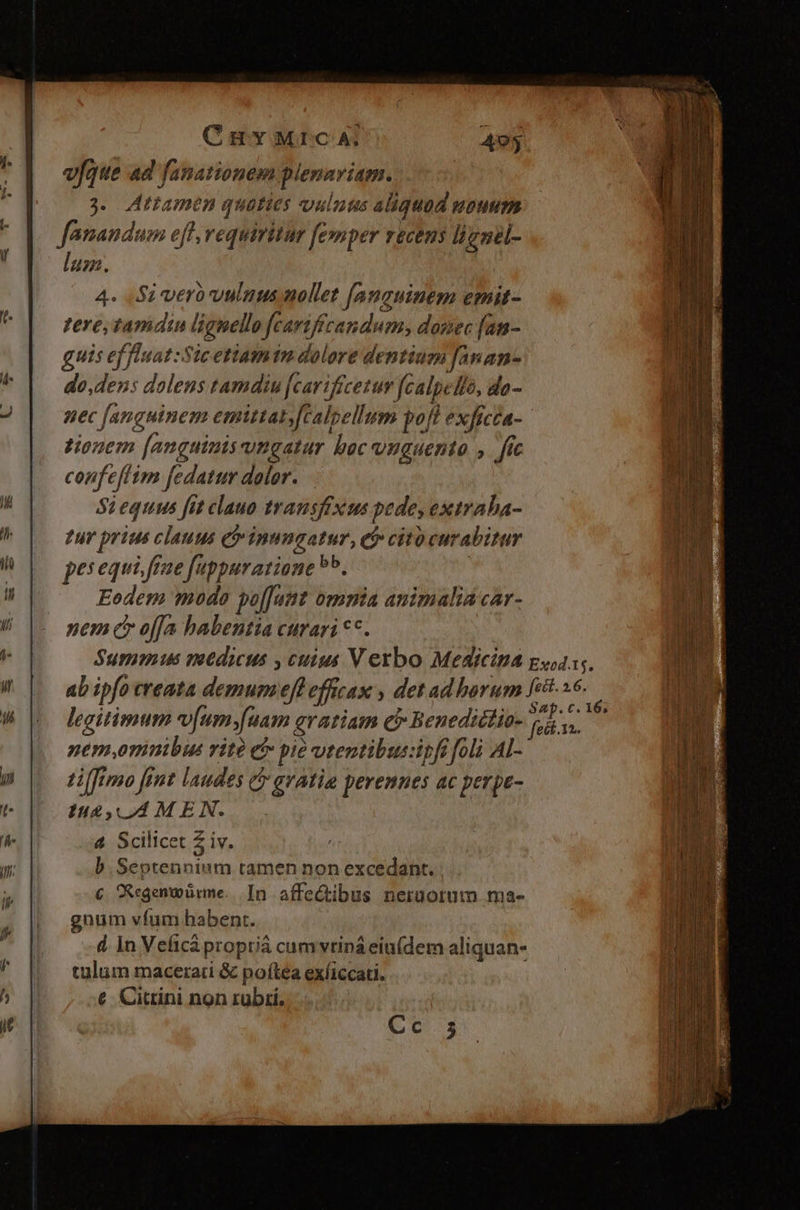 CHYMICA. 405
vſque ad ſanationem plenariam.
3. Attamen quoties vulnus aliquod nouum
ſanandum eſt, requiritur ſemper recens lignel-
lum.
4. Si verò vulnus nollet ſanguinem emit-
tere, tamdiu lignello ſcarificandum, donec ſan-
guis effluat: Sic etiam in dolore dentium ſanan-
do, dens dolens tamdiu ſcarificetur ſcalpello, do-
nec ſanguinem emittat, ſcalpellum poſt exſicca-
tionem ſanguinis vngatur hoc vnguento, ſic
confeſtim ſedatur dolor.
Si equus ſit clauo transfixus pede, extraha-
tur prius clauus & inungatur, & citò curabitur
pes equi, ſine ſuppuratione bb.
Eodem modo poſſunt omnia animalia car-
nem & oſſa habentia curari cc.
Summus medicus, cuius Verbo Medicina Exod.15.
ab ipſo creata demum eſt efficax, det ad horum ſect. 26.
legitimum vſum, ſuam gratiam & Benedictio- Sap. c. 16.
nem, omnibus ritè & piè vtentibus: ipſi ſoli Al- ſect.12.
tiſſimo ſint laudes & gratiæ perennes ac perpe-
tuæ, AMEN.
a Scilicet ℥ iv.
b Septennium tamen non excedant.
c Regenwürme. In affectibus neruorum ma-
gnum vſum habent.
d In Veſicâ propriâ cum vrinâ eiuſdem aliquan-
tulum macerati & poſtea exſiccati.
e Citrini non rubri.
Cc 3